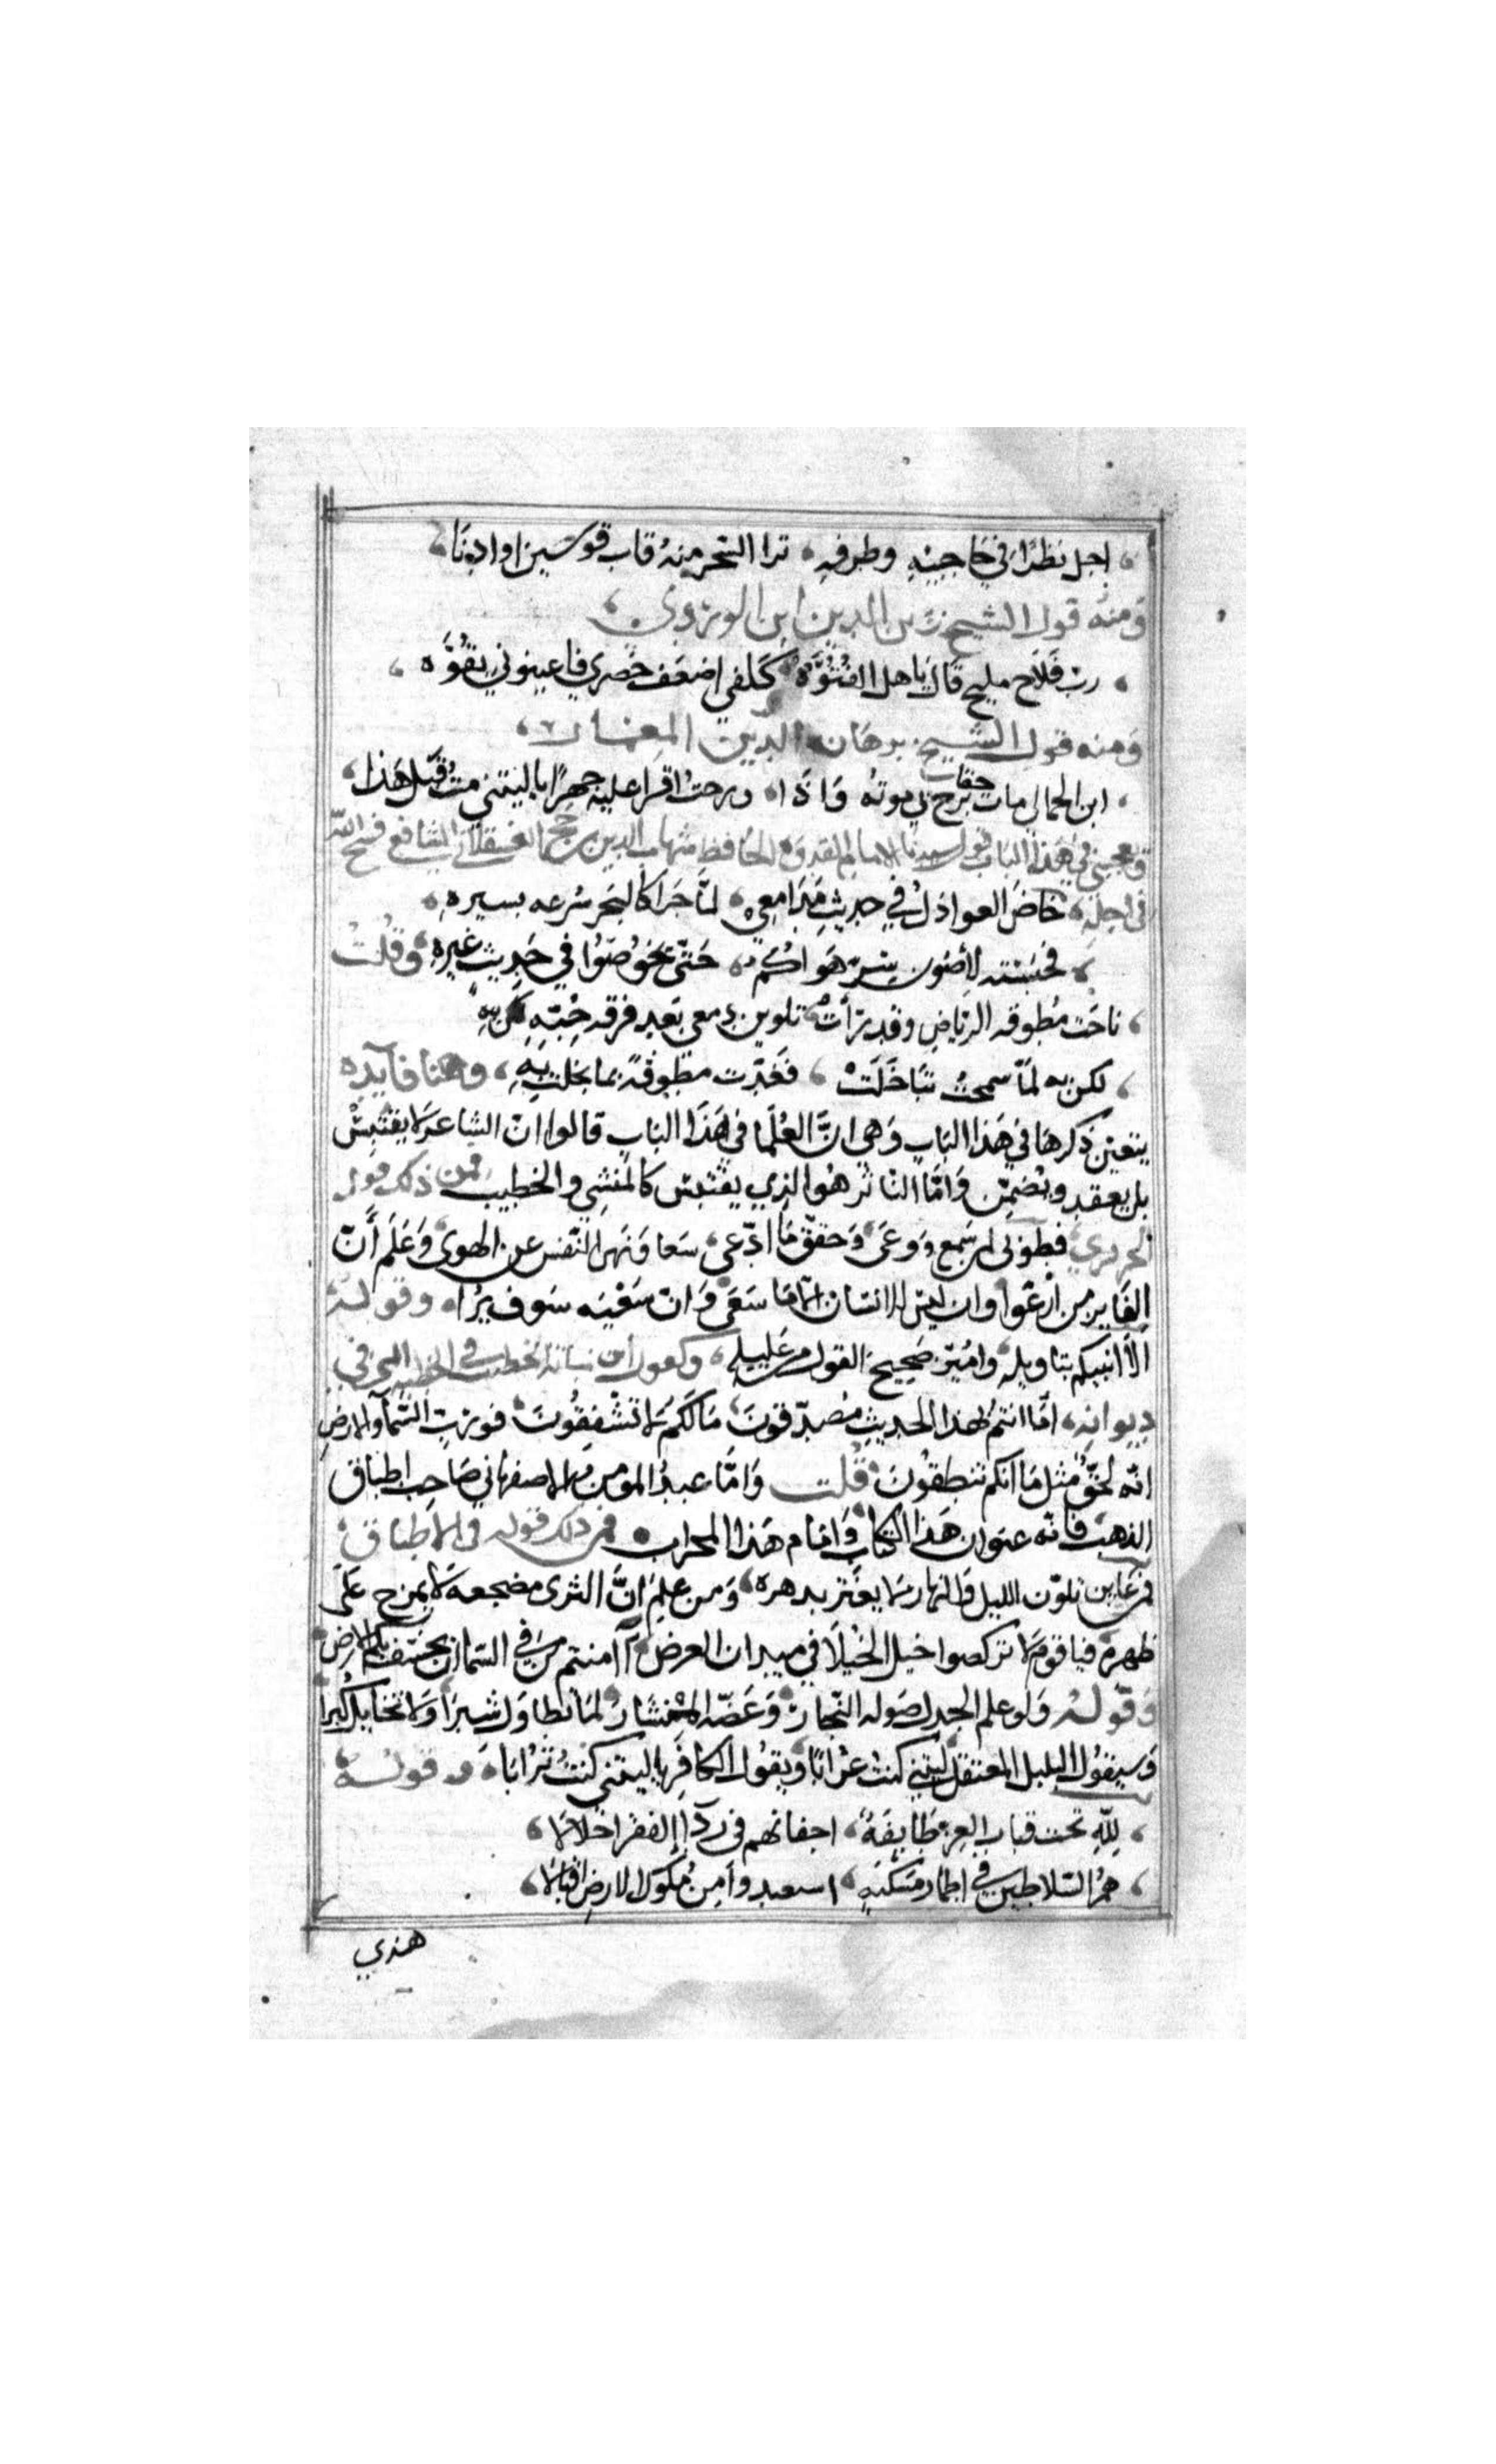 اجل نظرًا في حاجبيه وطرفه، ترا السحر منه قاب قوسين او ادنا
ومنه قول الشيخ زين الدين ابن الوردي
رب فلاح مليح قال ياهل الفتوّه كفلي اضعف خصري فاعينوني بقوّه
ومنه قول الشيخ برهان الدين المعمار
ابن الجمالي مات حقا برح بي موته واذا، ورحت اقرا عليه جهرًا ياليتني مت قبل هذا
ويعجبني في هذا الباب قول سيدنا الامام القدوة الحافظ شهاب الدين بن حجر العسقلاني الشافعي فسح الله
في اجله، خاض العواذل في حديث مدامعي، لما جرا كالبحر سرعه بسيره،
فحبسته لأصون سر هواكم، حتى يخوضوا في حديث غيره، وقلت
ناحت مطوقه الرياض وقد رأت تلوين دمعي بعد فرقه حبّه
لكن به لمّا سمحت تباخلت، فغدت مطوقة بما بخلت به، وهنا فايده
يتعين ذكرها في هذا الباب وهي انّ العلما في هذا الباب قالوا انّ الشاعر لا يقتبس
بل يعقد ويضمّن وامّا الناثر هو الذي يقتبس كالمنشي والخطيب فمن ذلك قول
الحريري، فطوبى لمن سمع ووعى وحقّق ما ادّعى، ونهى النّفس عن الهوى وعلم أنّ
الفايز من ارعوا وان ليس للانسان الا ما سعى وان سعيه سوف يراه وقوله
الا انبيكم بتاويله، واميّز صحيح القول من عليله، وكقول ابن نباته الخطيب في الخطبه التي في
ديوانه، امّا انتم بهذا الحديث مصدّقون ما لكم لا تشفقون فورب السّمآ والارض
انّه لحقّ مثل ما انكم تنطقون قلت وامّا عبد المومن الاصفهاني صاحب اطباق
الذهب فانّه عنوان هذا الكتاب وامام هذا المحراب فمن ذلك قوله في الاطباق
فمن عاين تلوّن الليل والنهار لا يغتر بدهره ومن علم انّ الثرى مضجعه لا يمرح على
ظهره فيا قوم لا تركضوا خيل الخيلا في ميدان العرض أآمنتم من في السما ان يخسف بكم الارض
وقوله ولو علم الجدل صوله النّجار وعضّه المنشار لما تطاول شبرا ولا تخايل كبرا
وسيقول البلبل المعتقل ليتني كنت غرابًا ويقول الكافر ياليتني كنت ترابا، وقوله
للّه تحت قباب العز طايفة، اخفاهم في ردا الفقر اجلالا
هم السّلاطين في اطمار مسكنه، من ملوك الارض اقيالا،
هذي